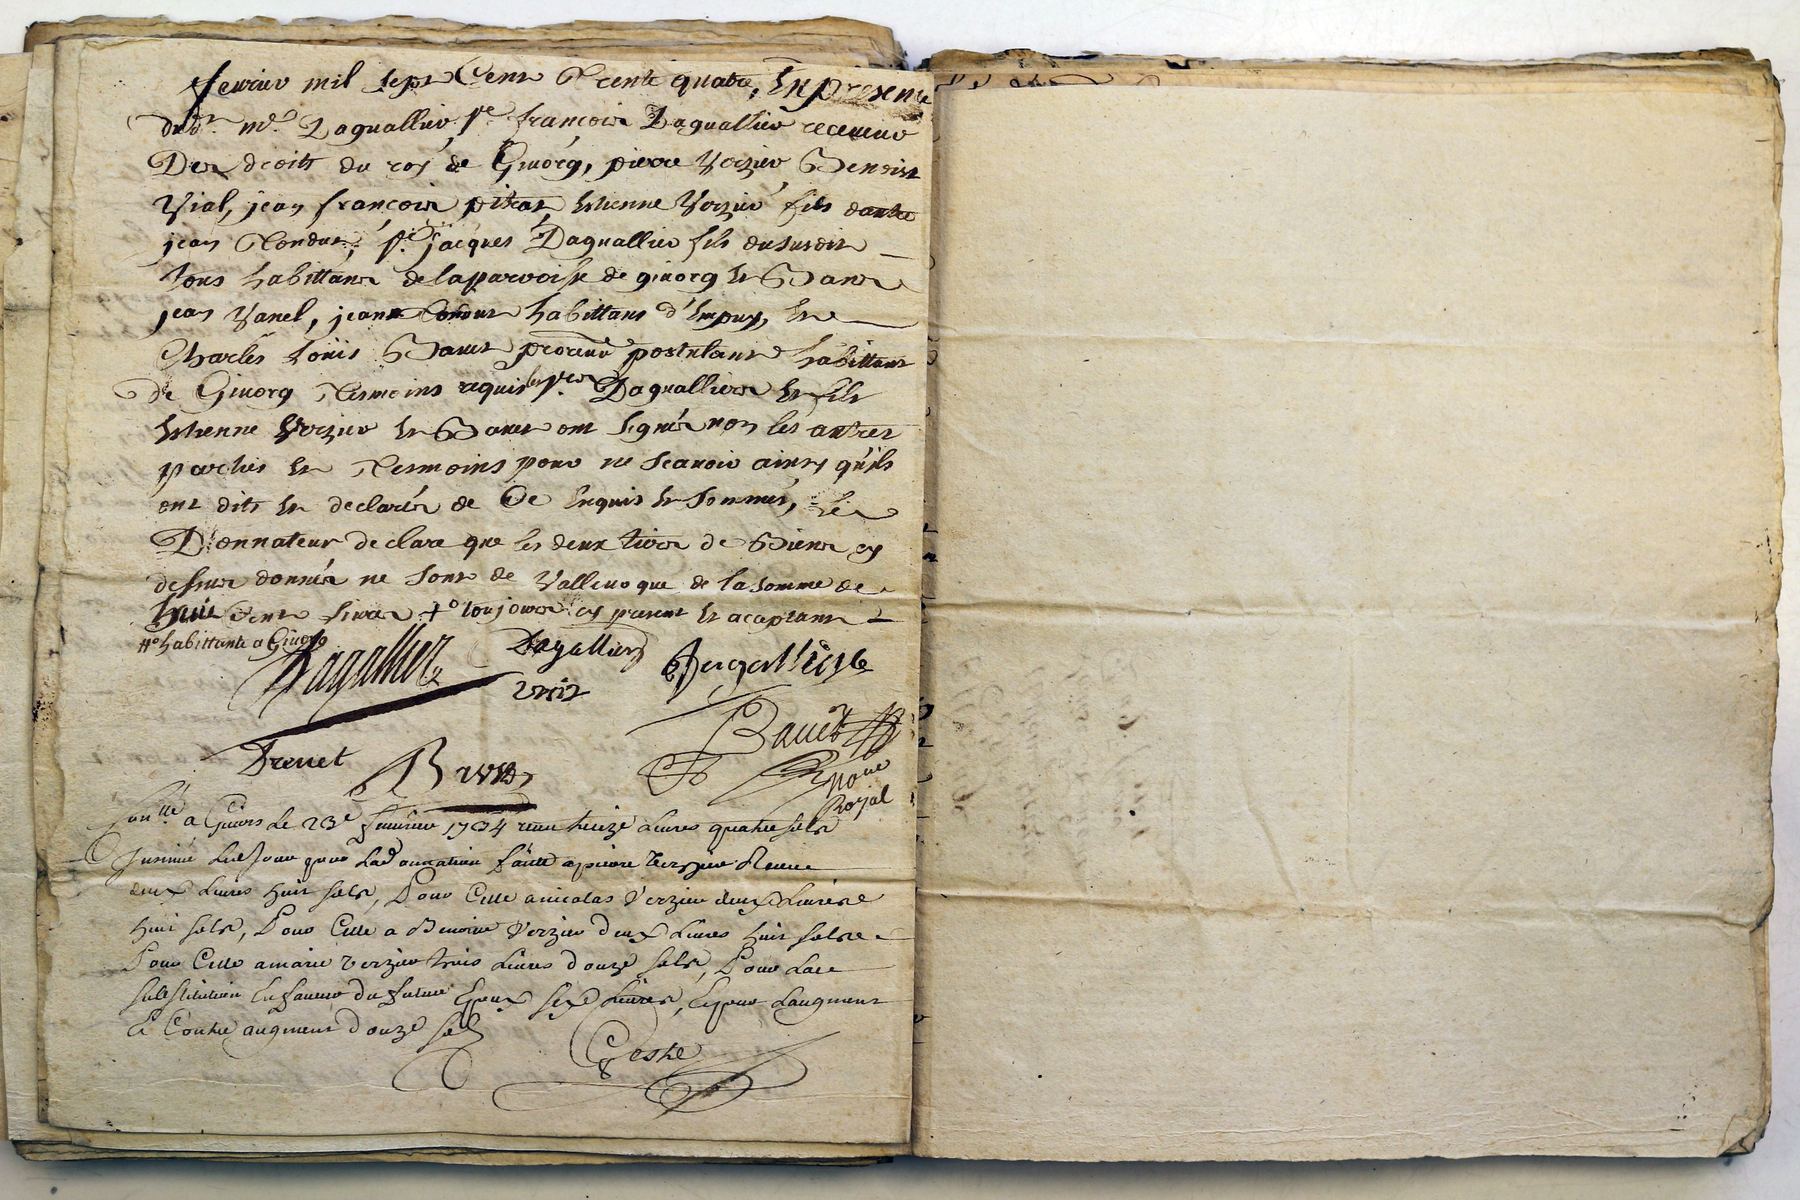 fevrier mil sept Cent Trente quatre, En presence
dud. sr. me. Daguallier, sr. françois Daguallier receveur
Des droits du roy de Givorg, pierre Verzieu Benoist
Vial, jean françois pitrat, Etienne Verzieu fils dautre
jean Condur, sr. jacques Daguallier fils du susdit
tous habittans de la parroisse de givorg Et
jean Vanel, jean Condur habittans d'Empuy, Et
Charles Loüis Bauet procureur postulant habittant
de Givorg Tesmoins requis les srs. Daguallier Et fils
Etienne Verzieu Et Bauet ont signés non les autres
parties Et Tesmoins pour ne scavoir ainsy qu'ils
ont dits Et declarés de Ce Enquis Et sommés, Le
Donnateur declare que les deux tiers de Biens cy
dessus donnés ne sont de Valleur que de la somme de
huit Cent livres +° toujours cy present Et acceptant
#° habittante a Givorg
Dagallier Dagallier Dagallier
Drevet Bauet
procureur
Royal
Conlle a Givors Le 23e fevrier 1734 reçu treize Livres quatre sols
Insinué Led Jour pour La donnation faitte a pierre Verzieu Receu
deux Livres huit sols, Pour Celle a nicolas Verzieu deux Livres
huit sols, Pour Celle a Benoite Verzieu deux Livres huit sols
Pour Celle a marie verzieu trois Livres douze sols, Pour La
substitution En faveur du futur Epoux six Livres, Et pour Laugment
Et Contre augment douze sols
Geste